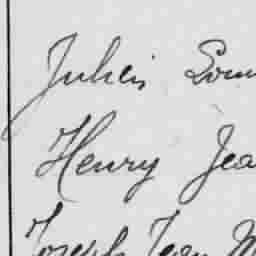 Julien
Henry Jea
Joseph Jean M